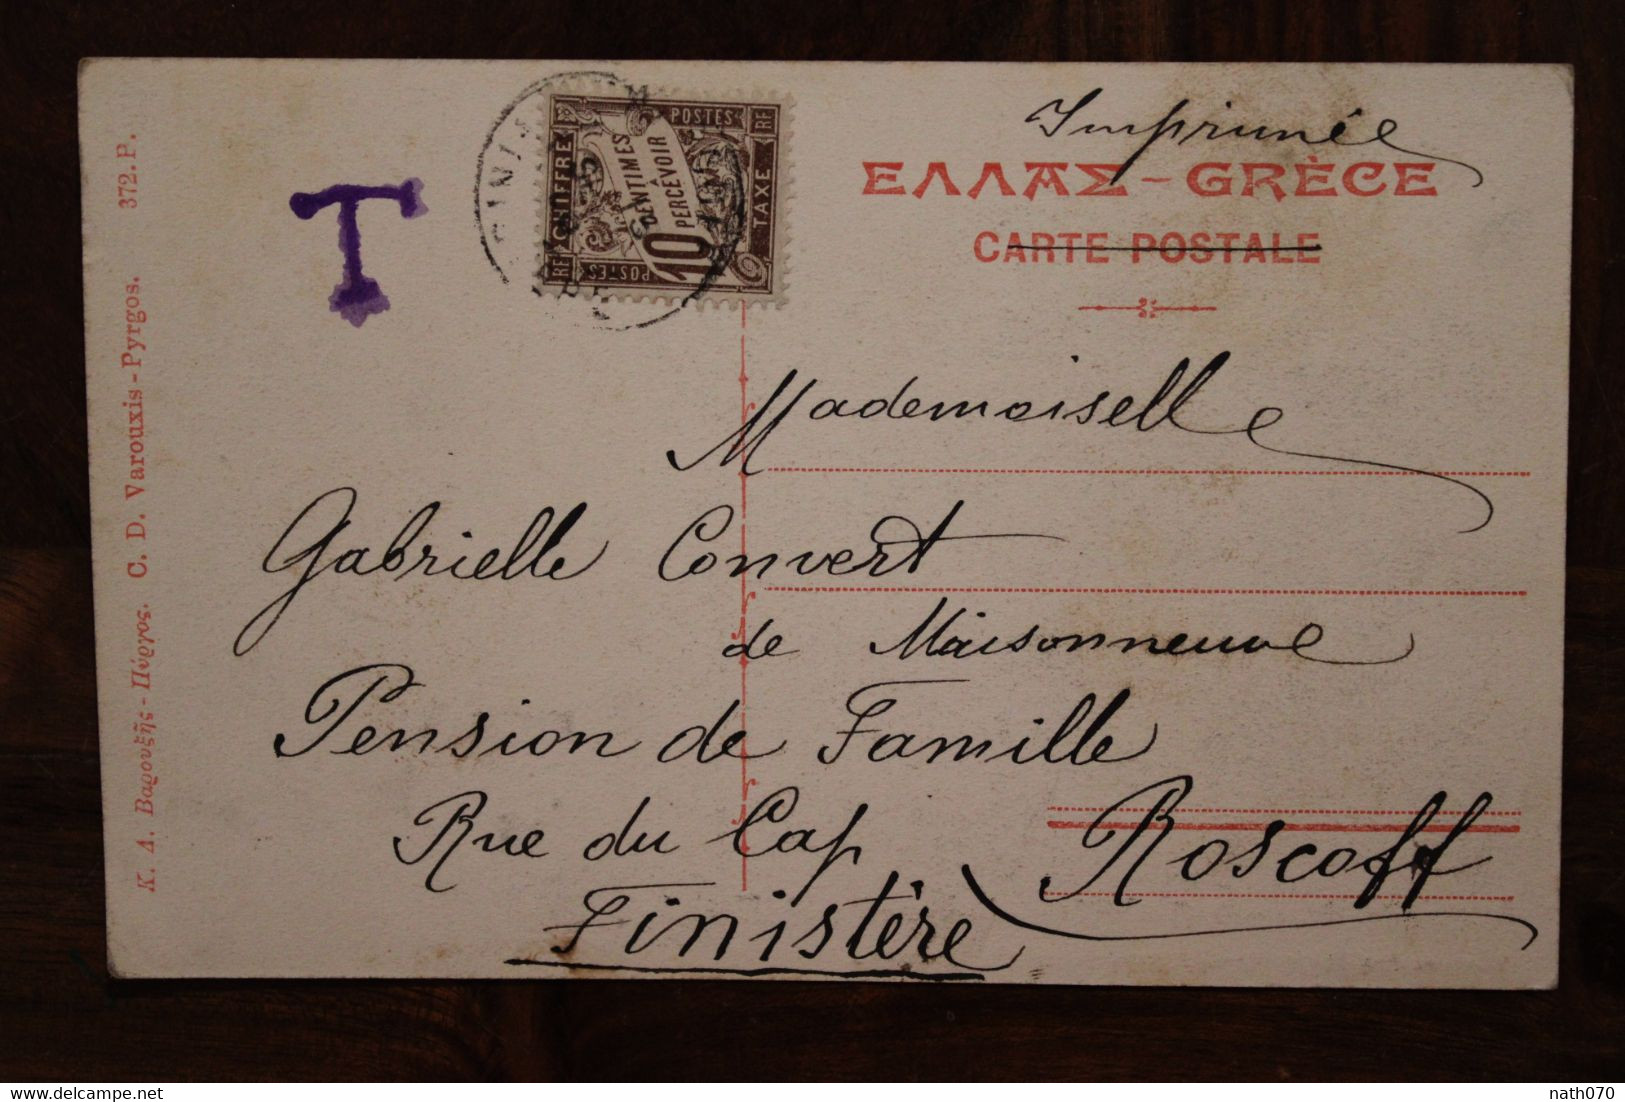 Imprimée
ΕΛΛΑΣ - GRÈCE
CARTE POSTALE
T
CHIFFRE
POSTES
RF
TAXE
10 CENTIMES
PERCEVOIR
POSTES
RF
FINIS
Mademoiselle
Gabrielle Convert
de Maisonneuve
Pension de Famille
Rue du Cap Roscoff
Finistère
Κ. Δ. Βαρουξῆς - Πύργος. C. D. Varouxis - Pyrgos. 372. P.
nath070